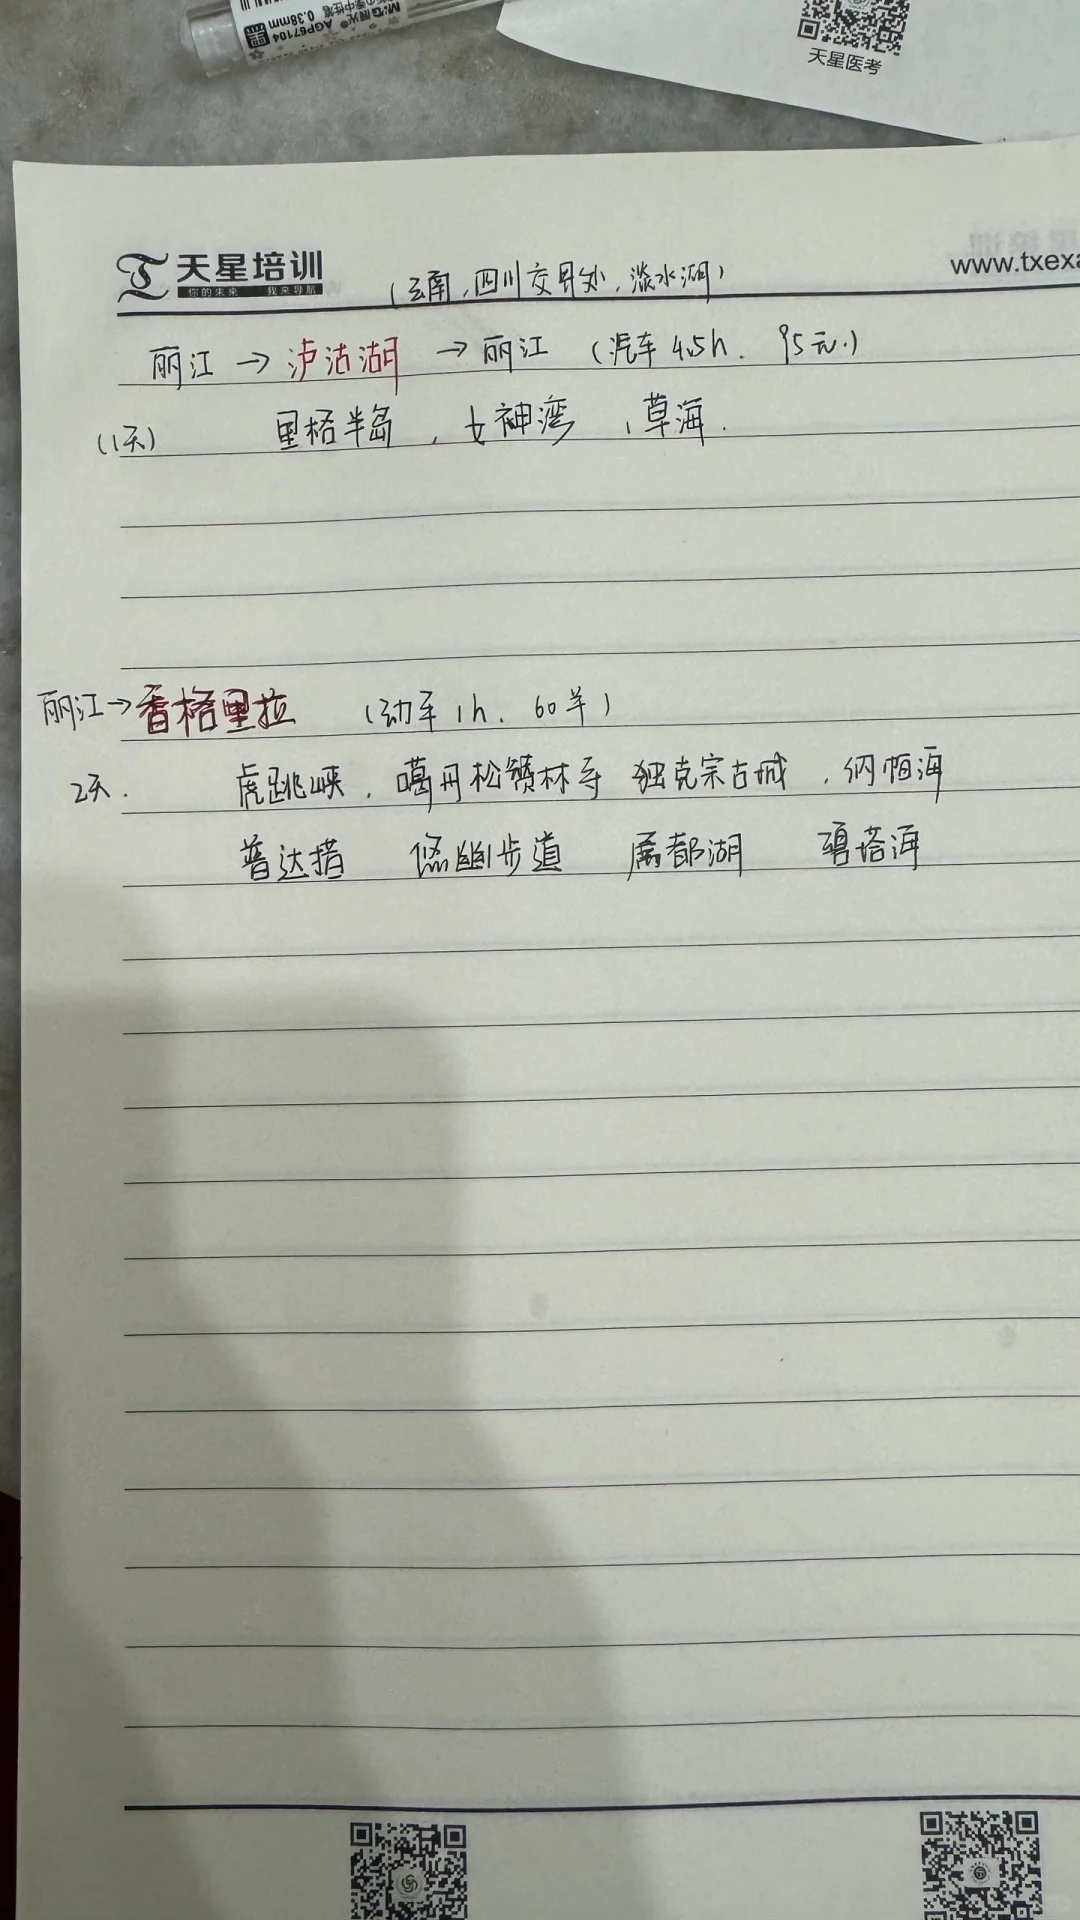 M&G 晨光
AGP67104
0.38mm 黑
天星医考
天星培训
你的未来 我来导航
www.txexa
(云南,四川交界处,淡水湖)
丽江→泸沽湖→丽江 (汽车4.5h. 95元.)
(1天) 里格半岛,女神湾,草海.
丽江→香格里拉 (动车1h. 60羊)
2天. 虎跳峡,噶丹松赞林寺 独克宗古城,纳帕海
普达措 悠幽步道 属都湖 碧塔海